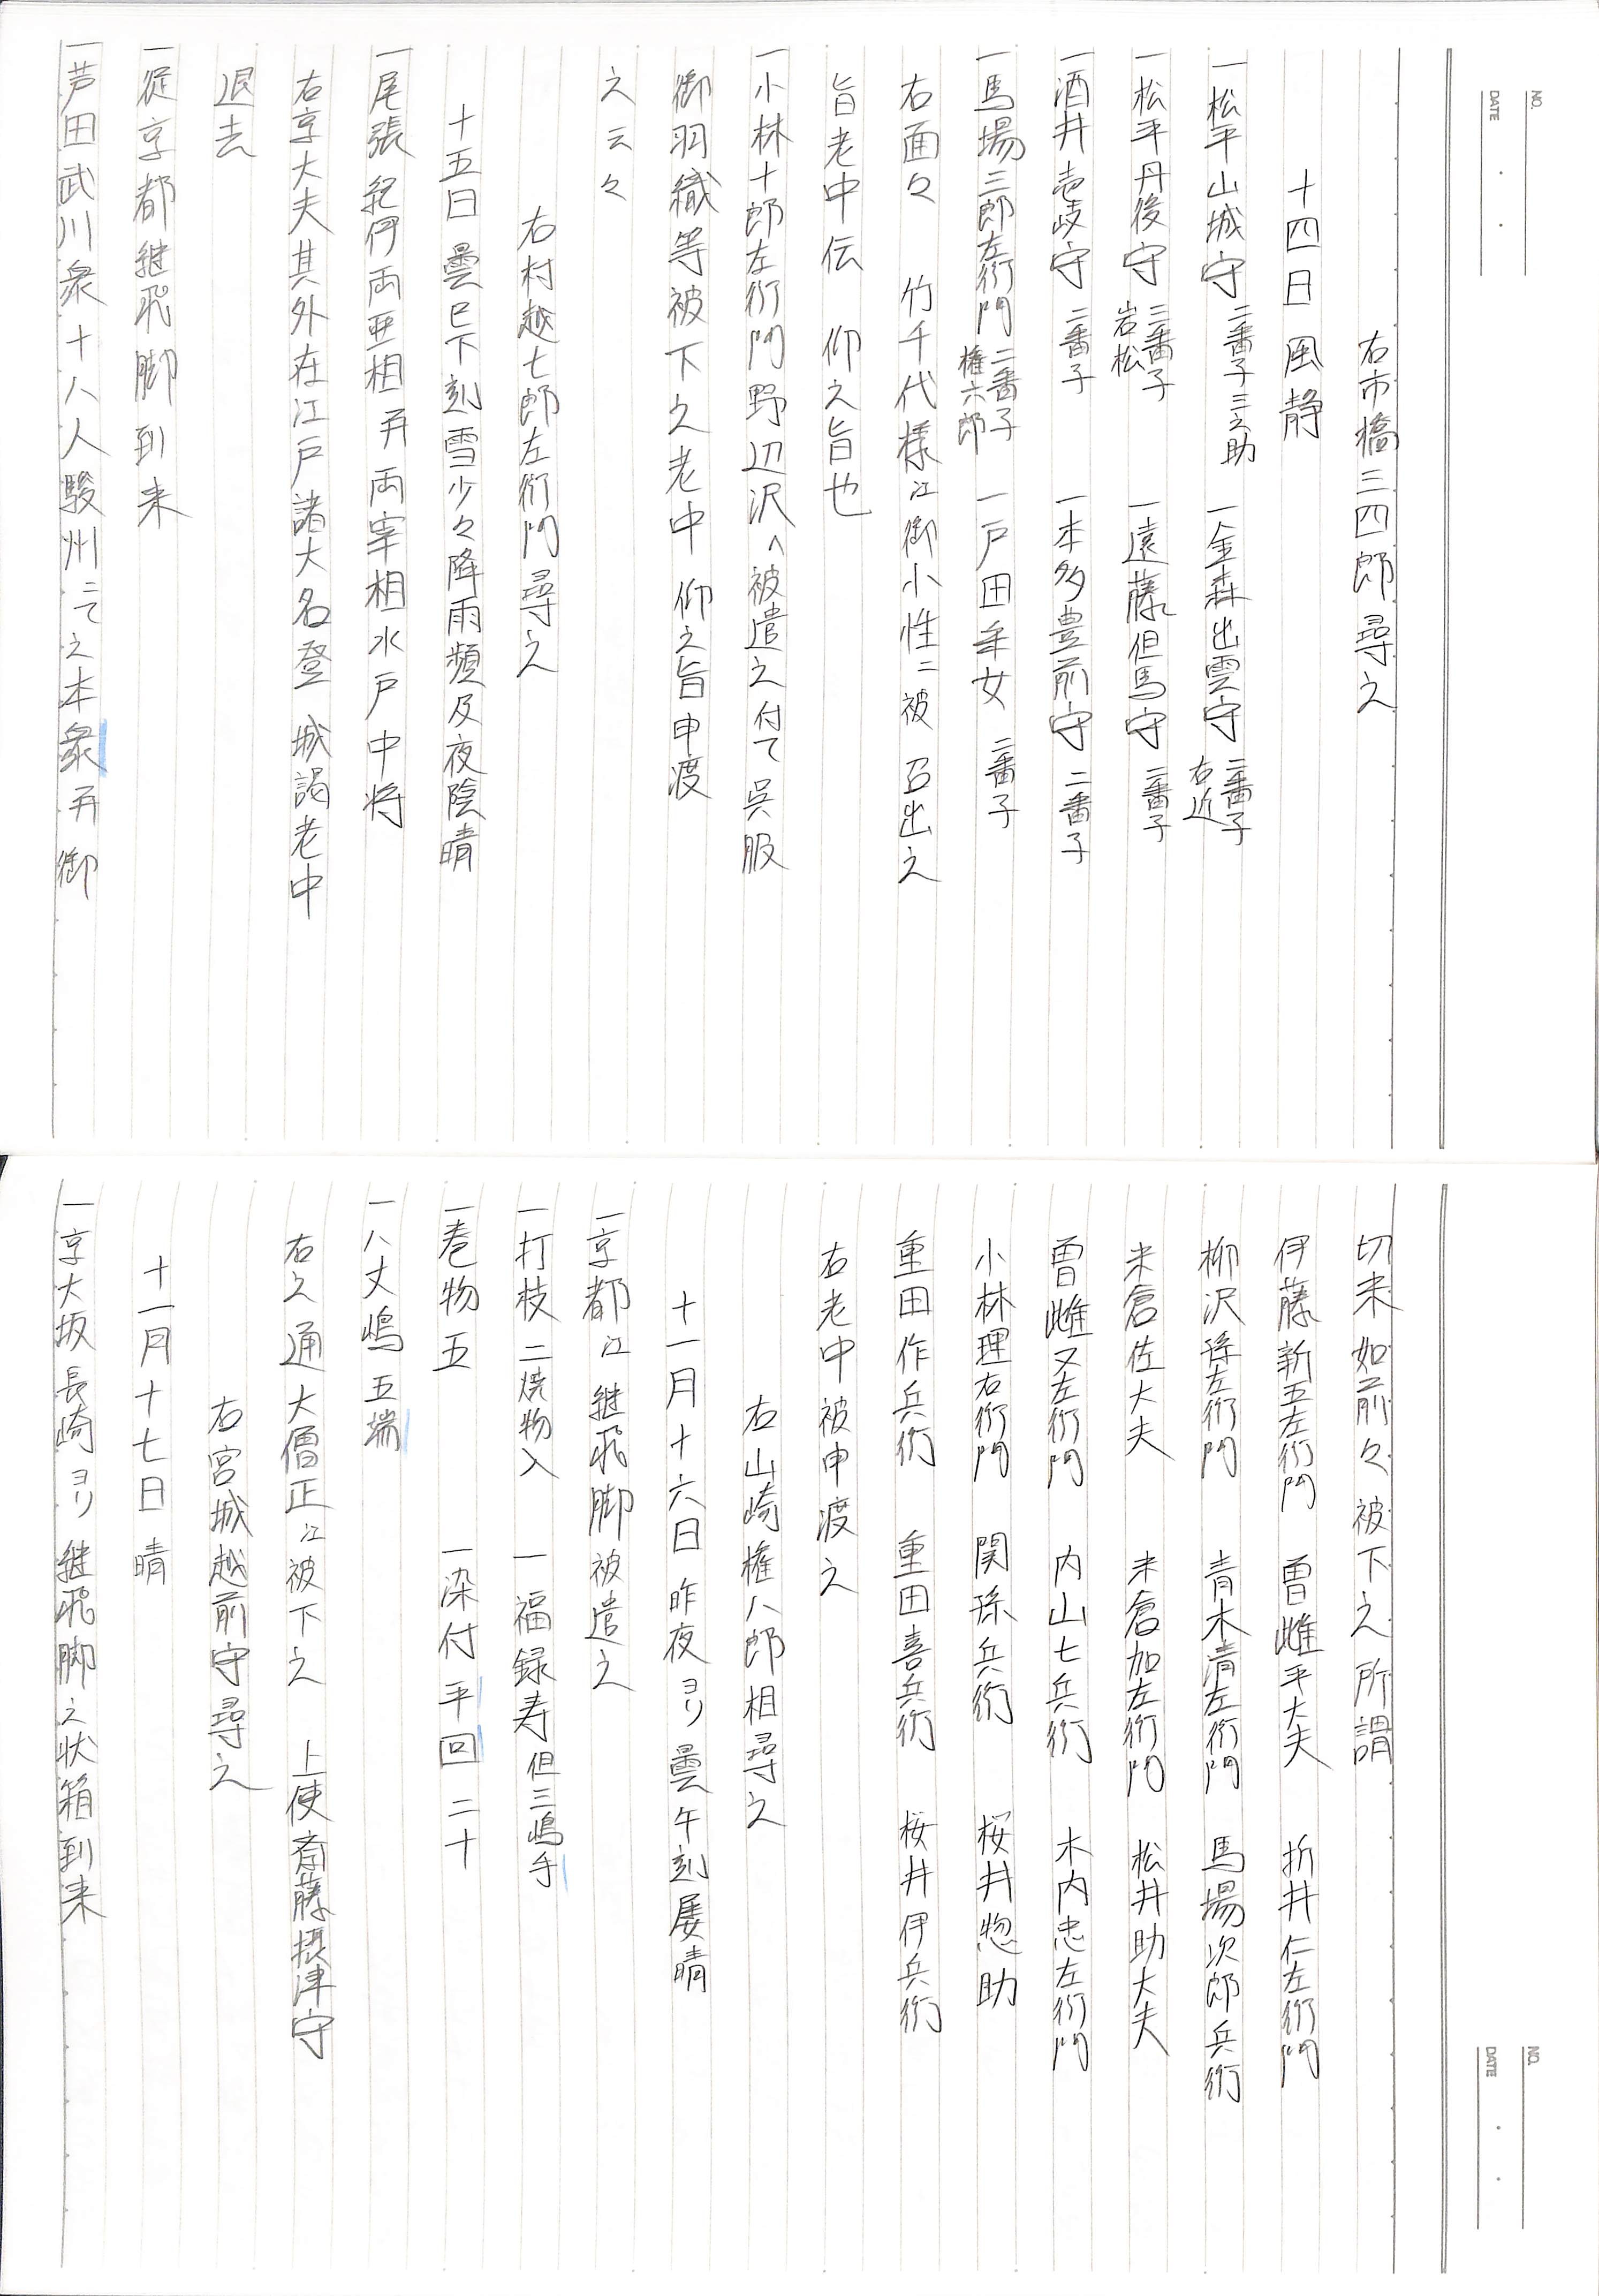 NO.
DATE
右市橋三四郎尋之
十四日 風静
一松平山城守 二番子 三之助 一金森出雲守 二番子 右近
一松平丹後守 三番子 岩松 一遠藤但馬守 二番子
一酒井壱岐守 二番子 一本多豊前守 二番子
一馬場三郎左衛門 二番子 権六郎 一戸田采女 二番子
右面々 竹千代様江御小性ニ被 召出之
旨老中伝 仰之旨也
一小林十郎左衛門野辺沢へ被遣之付て呉服
御羽織等被下之老中 仰之旨申渡
之云々
右村越七郎左衛門尋之
十五日 曇巳下刻雪少々降雨頻及夜陰晴
一尾張紀伊両亜相并両宰相水戸中将
右京大夫其外在江戸諸大名登 城謁老中
退去
一従京都継飛脚到来
一芦田武川衆十八人駿州ニて之本衆并御
NO.
DATE
切米如前々被下之所謂
伊藤新五左衛門 曽雌平大夫 折井仁左衛門
柳沢孫左衛門 青木清左衛門 馬場次郎兵衛
米倉佐大夫 米倉加左衛門 松井助大夫
曽雌又左衛門 内山七兵衛 木内忠左衛門
小林理右衛門 関孫兵衛 桜井惣助
重田作兵衛 重田喜兵衛 桜井伊兵衛
右老中被申渡之
右山崎権八郎相尋之
十一月十六日 昨夜ヨリ曇午刻属晴
一京都江継飛脚被遣之
一打枝二焼物入 一福録寿 但三嶋手
一巻物五 一染付平回二十
一八丈嶋五端
右之通大僧正江被下之 上使斎藤摂津守
右宮城越前守尋之
十一月十七日 晴
一京大坂長崎ヨリ継飛脚之状箱到来